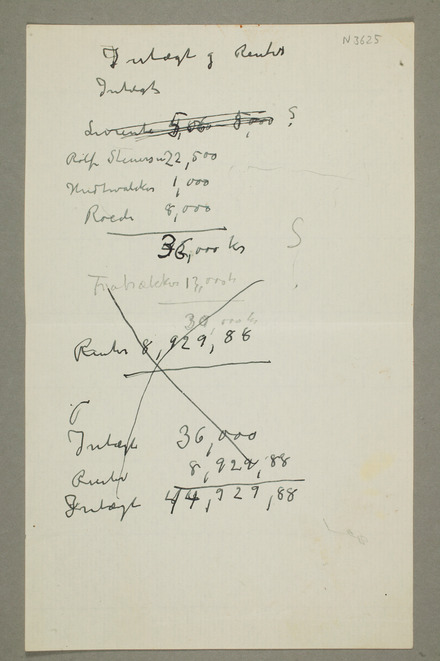 N 3625
Indtægt og Renter
Indtægt
5,000 ?
Rolf Stenersen 22,500
Hudtwalcker 1,000
Roede 8,000
36,000 kr
Fratrækkes 13,000 kr
30,000 kr
Renter 8,929,88
Indtægt 36,000
Renter 8,929,88
Indtægt 44,929,88